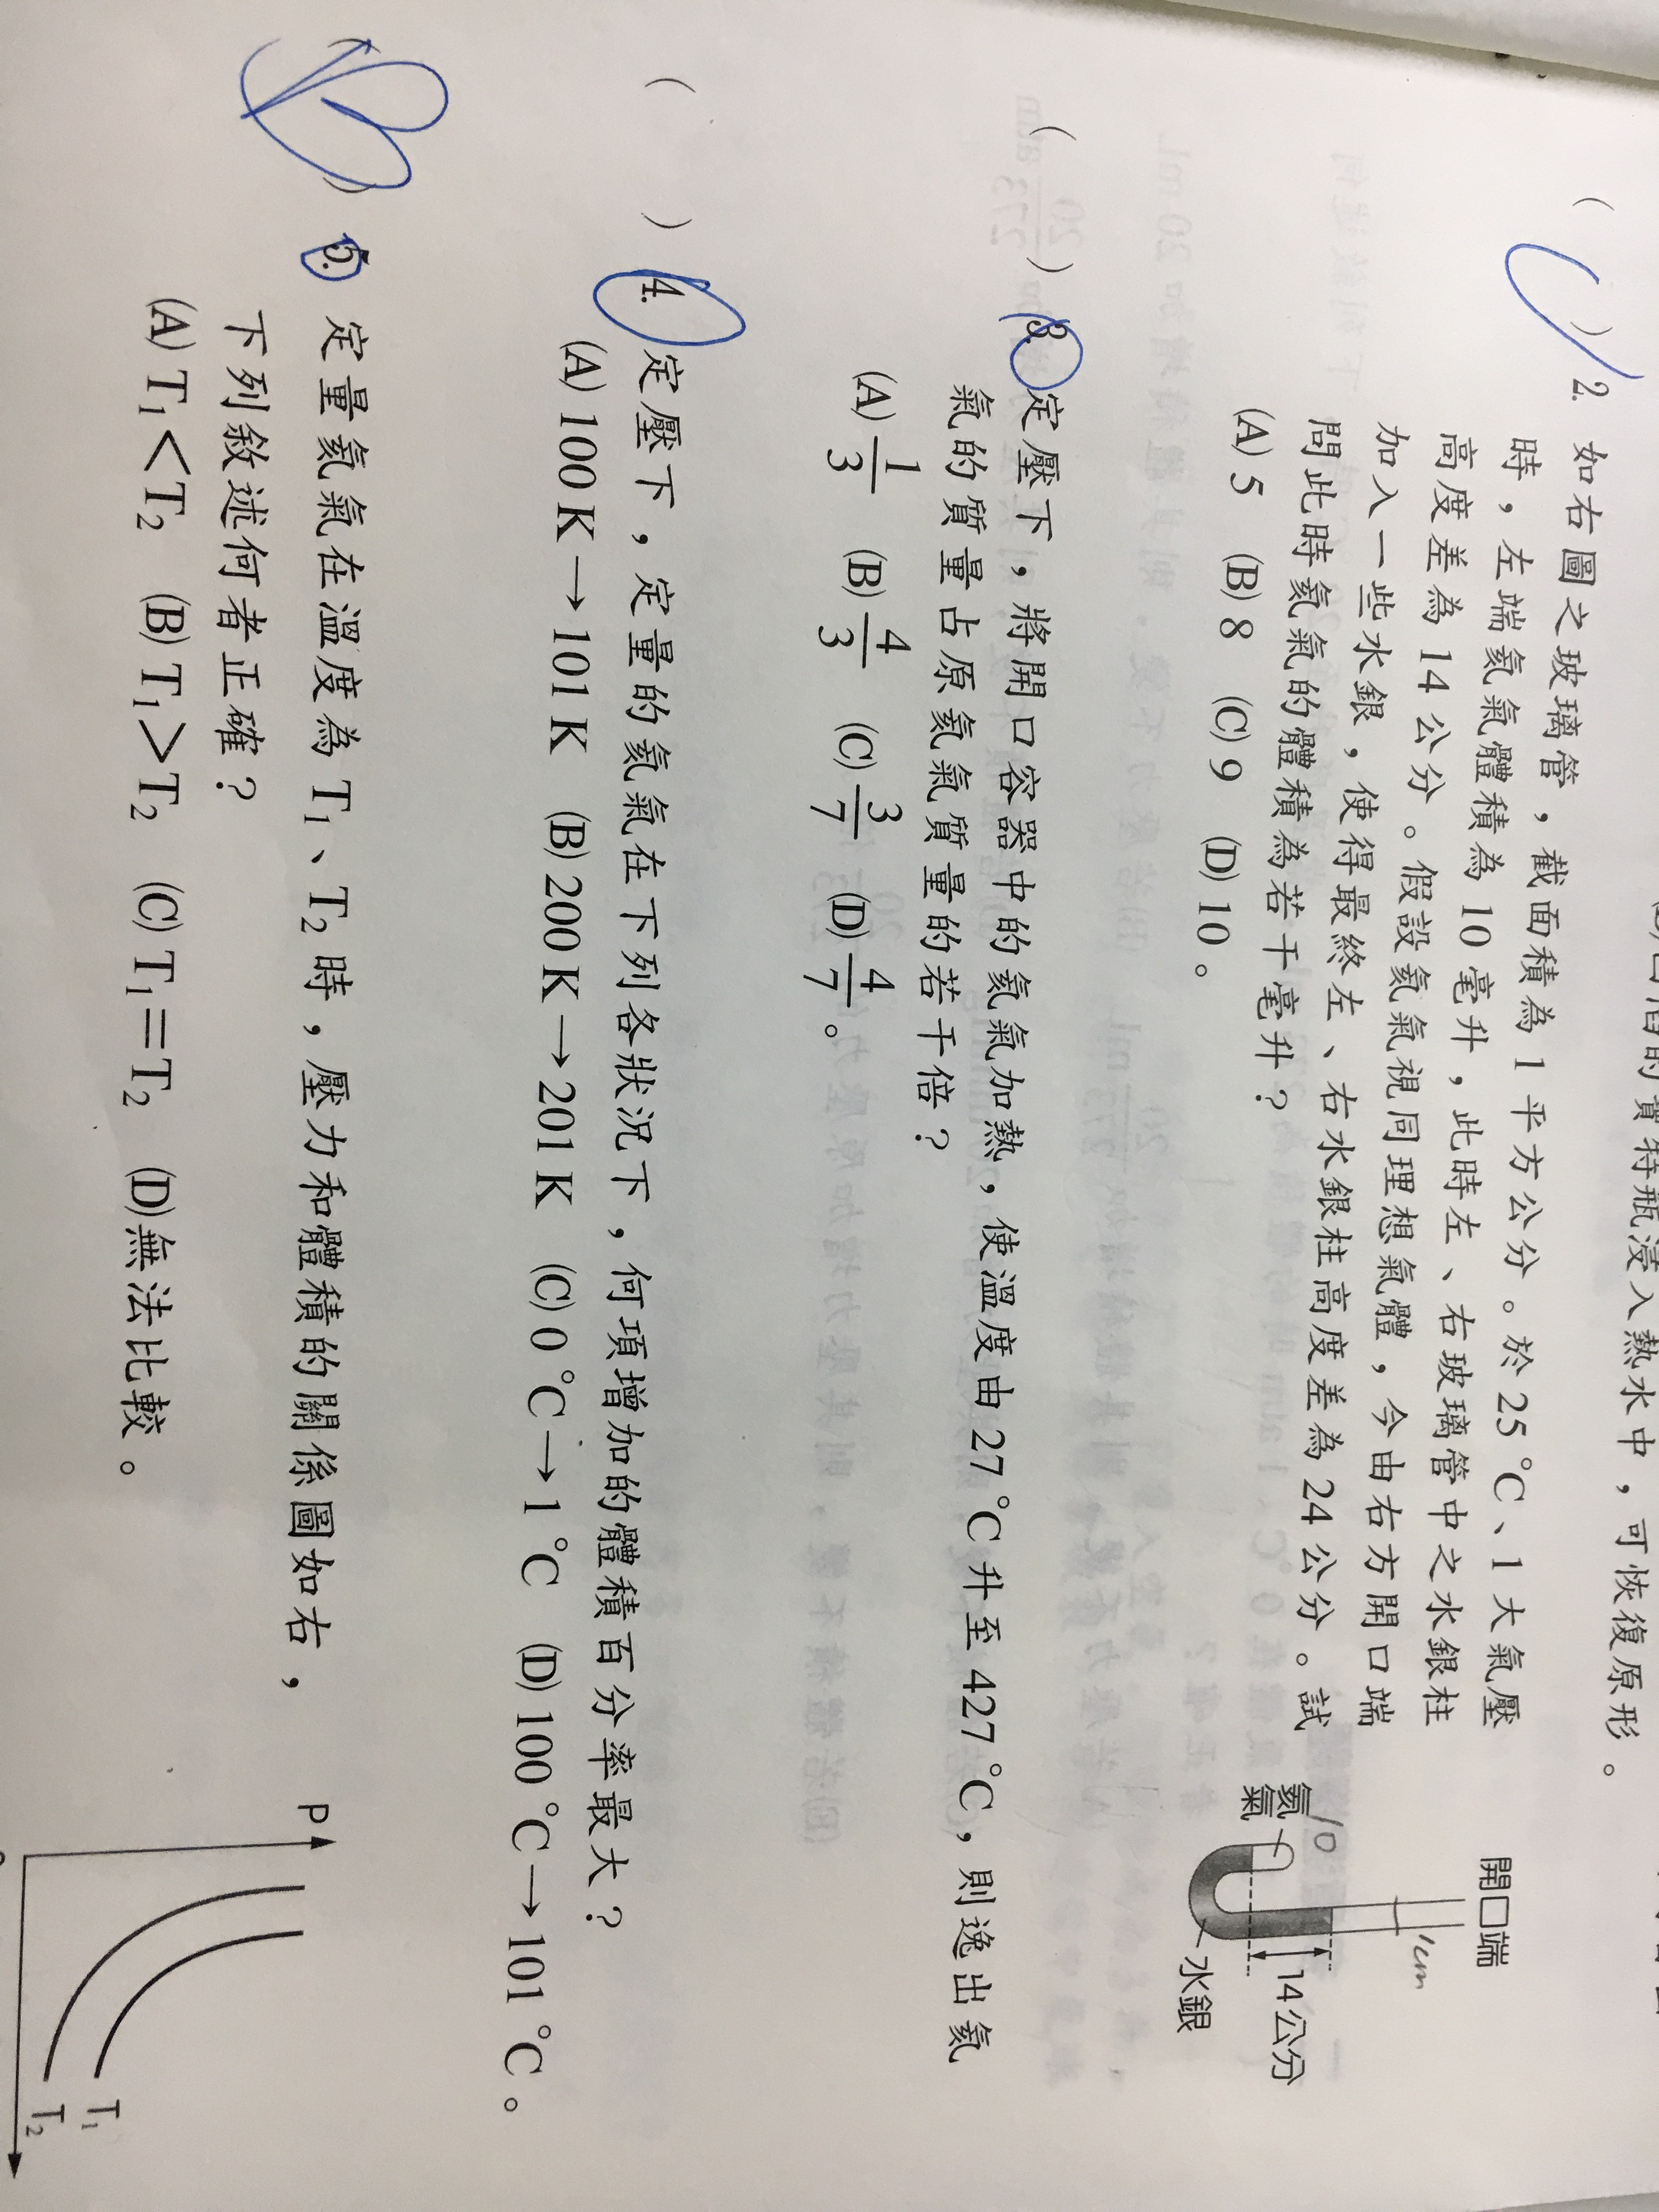 的寶特瓶浸入熱水中，可恢復原形。
( ) 2. 如右圖之玻璃管，截面積為 1 平方公分。於 25 ℃、1 大氣壓
時，左端氦氣體積為 10 毫升，此時左、右玻璃管中之水銀柱
高度差為 14 公分。假設氦氣視同理想氣體，今由右方開口端
加入一些水銀，使得最終左、右水銀柱高度差為 24 公分。試
問此時氦氣的體積為若干毫升？
(A) 5 (B) 8 (C) 9 (D) 10。
開口端
1cm
10
氦氣
14公分
水銀
( ) 3. 定壓下，將開口容器中的氦氣加熱，使溫度由 27 ℃升至 427 ℃，則逸出氦
氣的質量占原氦氣質量的若干倍？
(A) 1/3 (B) 4/3 (C) 3/7 (D) 4/7。
( ) 4. 定壓下，定量的氦氣在下列各狀況下，何項增加的體積百分率最大？
(A) 100 K → 101 K (B) 200 K → 201 K (C) 0 ℃ → 1 ℃ (D) 100 ℃ → 101 ℃。
( B ) 5. 定量氦氣在溫度為 T₁、T₂ 時，壓力和體積的關係圖如右，
下列敘述何者正確？
(A) T₁＜T₂ (B) T₁＞T₂ (C) T₁＝T₂ (D)無法比較。
P
T₁
T₂